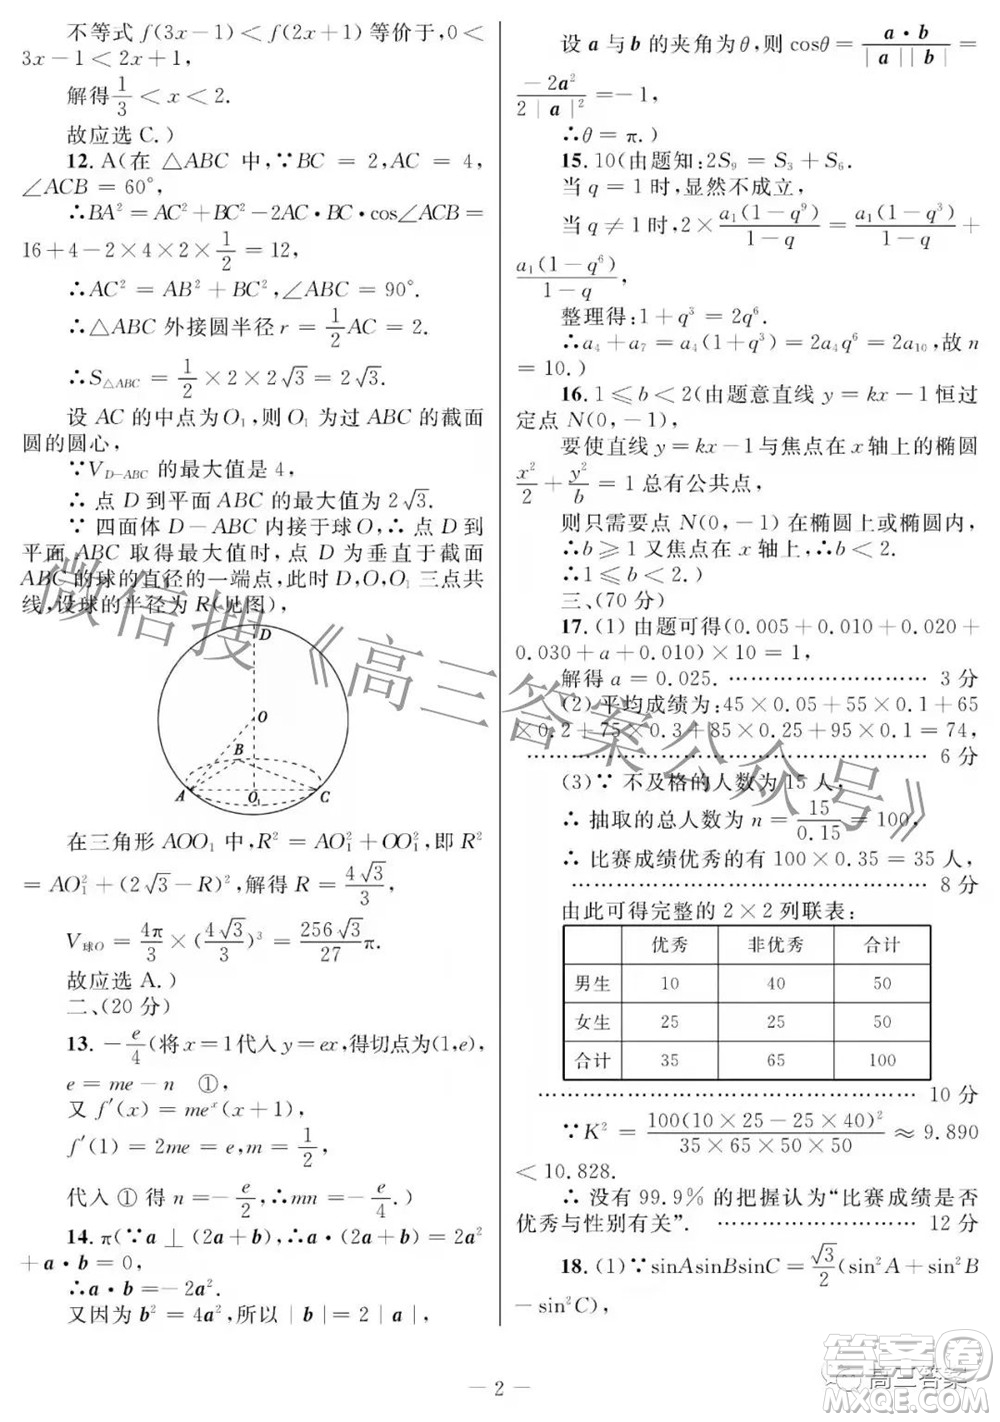 不等式 f(3x－1)＜f(2x＋1)等价于,0＜
3x－1＜2x＋1,
解得1/3＜x＜2.
故应选 C.)
12. A(在 △ABC 中,∵BC = 2,AC = 4,
∠ACB = 60°,
∴BA² = AC² + BC² − 2AC·BC·cos∠ACB =
16 + 4 − 2×4×2×1/2 = 12,
∴AC² = AB² + BC²,∠ABC = 90°.
∴△ABC 外接圆半径 r = 1/2 AC = 2.
∴S△ABC = 1/2 × 2 × 2√3 = 2√3.
设 AC 的中点为 O₁,则 O₁ 为过 ABC 的截面
圆的圆心,
∵V_{D−ABC} 的最大值是 4,
∴ 点 D 到平面 ABC 的最大值为 2√3.
∵ 四面体 D − ABC 内接于球 O,∴ 点 D 到
平面 ABC 取得最大值时,点 D 为垂直于截面
ABC 的球的直径的一端点,此时 D,O,O₁ 三点共
线,设球的半径为 R(见图),
D
O
B
A
O₁
C
在三角形 AOO₁ 中,R² = AO₁² + OO₁²,即 R²
= AO₁² + (2√3 − R)²,解得 R = 4√3/3,
V球O = 4π/3 × (4√3/3)³ = 256√3/27 π.
故应选 A.)
二、(20 分)
13. −e/4(将 x = 1代入 y = ex,得切点为(1,e),
e = me − n ①,
又 f′(x) = meˣ(x + 1),
f′(1) = 2me = e,m = 1/2,
代入 ① 得 n = −e/2,∴mn = −e/4.)
14. π(∵a ⊥ (2a + b),∴a·(2a + b) = 2a²
+ a·b = 0,
∴a·b = −2a².
又因为 b² = 4a²,所以 | b | = 2 | a |,
设 a 与 b 的夹角为 θ,则 cosθ = a·b/(| a || b |) =
−2a²/(2 | a |²) = −1,
∴θ = π.)
15. 10(由题知:2S₉ = S₃ + S₆.
当 q = 1 时,显然不成立,
当 q ≠ 1 时,2 × a₁(1 − q⁹)/(1 − q) = a₁(1 − q³)/(1 − q) +
a₁(1 − q⁶)/(1 − q),
整理得:1 + q³ = 2q⁶.
∴a₄ + a₇ = a₄(1 + q³) = 2a₄q⁶ = 2a₁₀,故 n
= 10.)
16. 1 ⩽ b < 2(由题意直线 y = kx − 1 恒过
定点 N(0,−1),
要使直线 y = kx − 1 与焦点在 x 轴上的椭圆
x²/2 + y²/b = 1 总有公共点,
则只需要点 N(0,−1) 在椭圆上或椭圆内,
∴b ⩾ 1 又焦点在 x 轴上,∴b < 2.
∴1 ⩽ b < 2.)
三、(70 分)
17. (1) 由题可得(0.005 + 0.010 + 0.020 +
0.030 + a + 0.010) × 10 = 1,
解得 a = 0.025. ………………………… 3 分
(2) 平均成绩为:45 × 0.05 + 55 × 0.1 + 65
× 0.2 + 75 × 0.3 + 85 × 0.25 + 95 × 0.1 = 74,
………………………………………… 6 分
(3)∵ 不及格的人数为 15 人,
∴ 抽取的总人数为 n = 15/0.15 = 100,
∴ 比赛成绩优秀的有 100 × 0.35 = 35 人,
………………………………………… 8 分
由此可得完整的 2 × 2 列联表:
优秀 非优秀 合计
男生 10 40 50
女生 25 25 50
合计 35 65 100
………………………………………… 10 分
∵K² = 100(10 × 25 − 25 × 40)²/(35 × 65 × 50 × 50) ≈ 9.890
< 10.828.
∴ 没有 99.9% 的把握认为“比赛成绩是否
优秀与性别有关”. ………………………… 12 分
18. (1)∵sinAsinBsinC = √3/2(sin²A + sin²B
− sin²C),
— 2 —
微信搜《高三答案公众号》
答案圈
高三答案
MXQE.COM